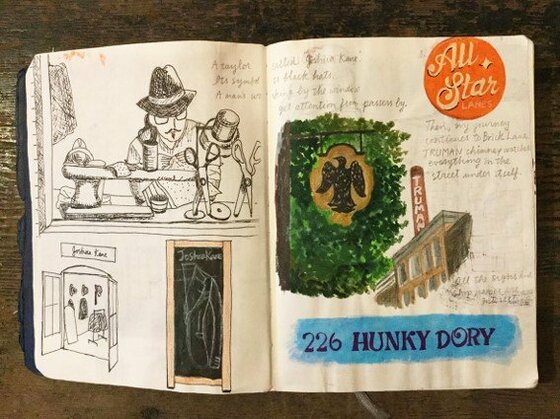 A taylor
Its symbol
A man's
called Joshua Kane.
is black hats.
by the window
get attention from passers by.
All Star
LANES
Then, my journey
continues to Brick Lane.
TRUMAN chimney watches
everything in the
street under itself.
TRUMA
All the signs and
Joshua Kane
Joshua Kane
226 HUNKY DORY